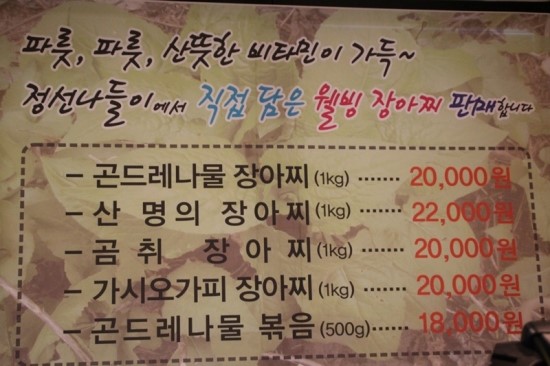 파릇, 파릇, 산뜻한 비타민이 가득~
정선나들이에서 직접 담은 웰빙 장아찌 판매합니다
- 곤드레나물 장아찌 (1kg) ······· 20,000원
- 산 명의 장아찌 (1kg) ······· 22,000원
- 곰취 장아찌 (1kg) ······· 20,000원
- 가시오가피 장아찌 (1kg) ······· 20,000원
- 곤드레나물 볶음 (500g)······ 18,000원